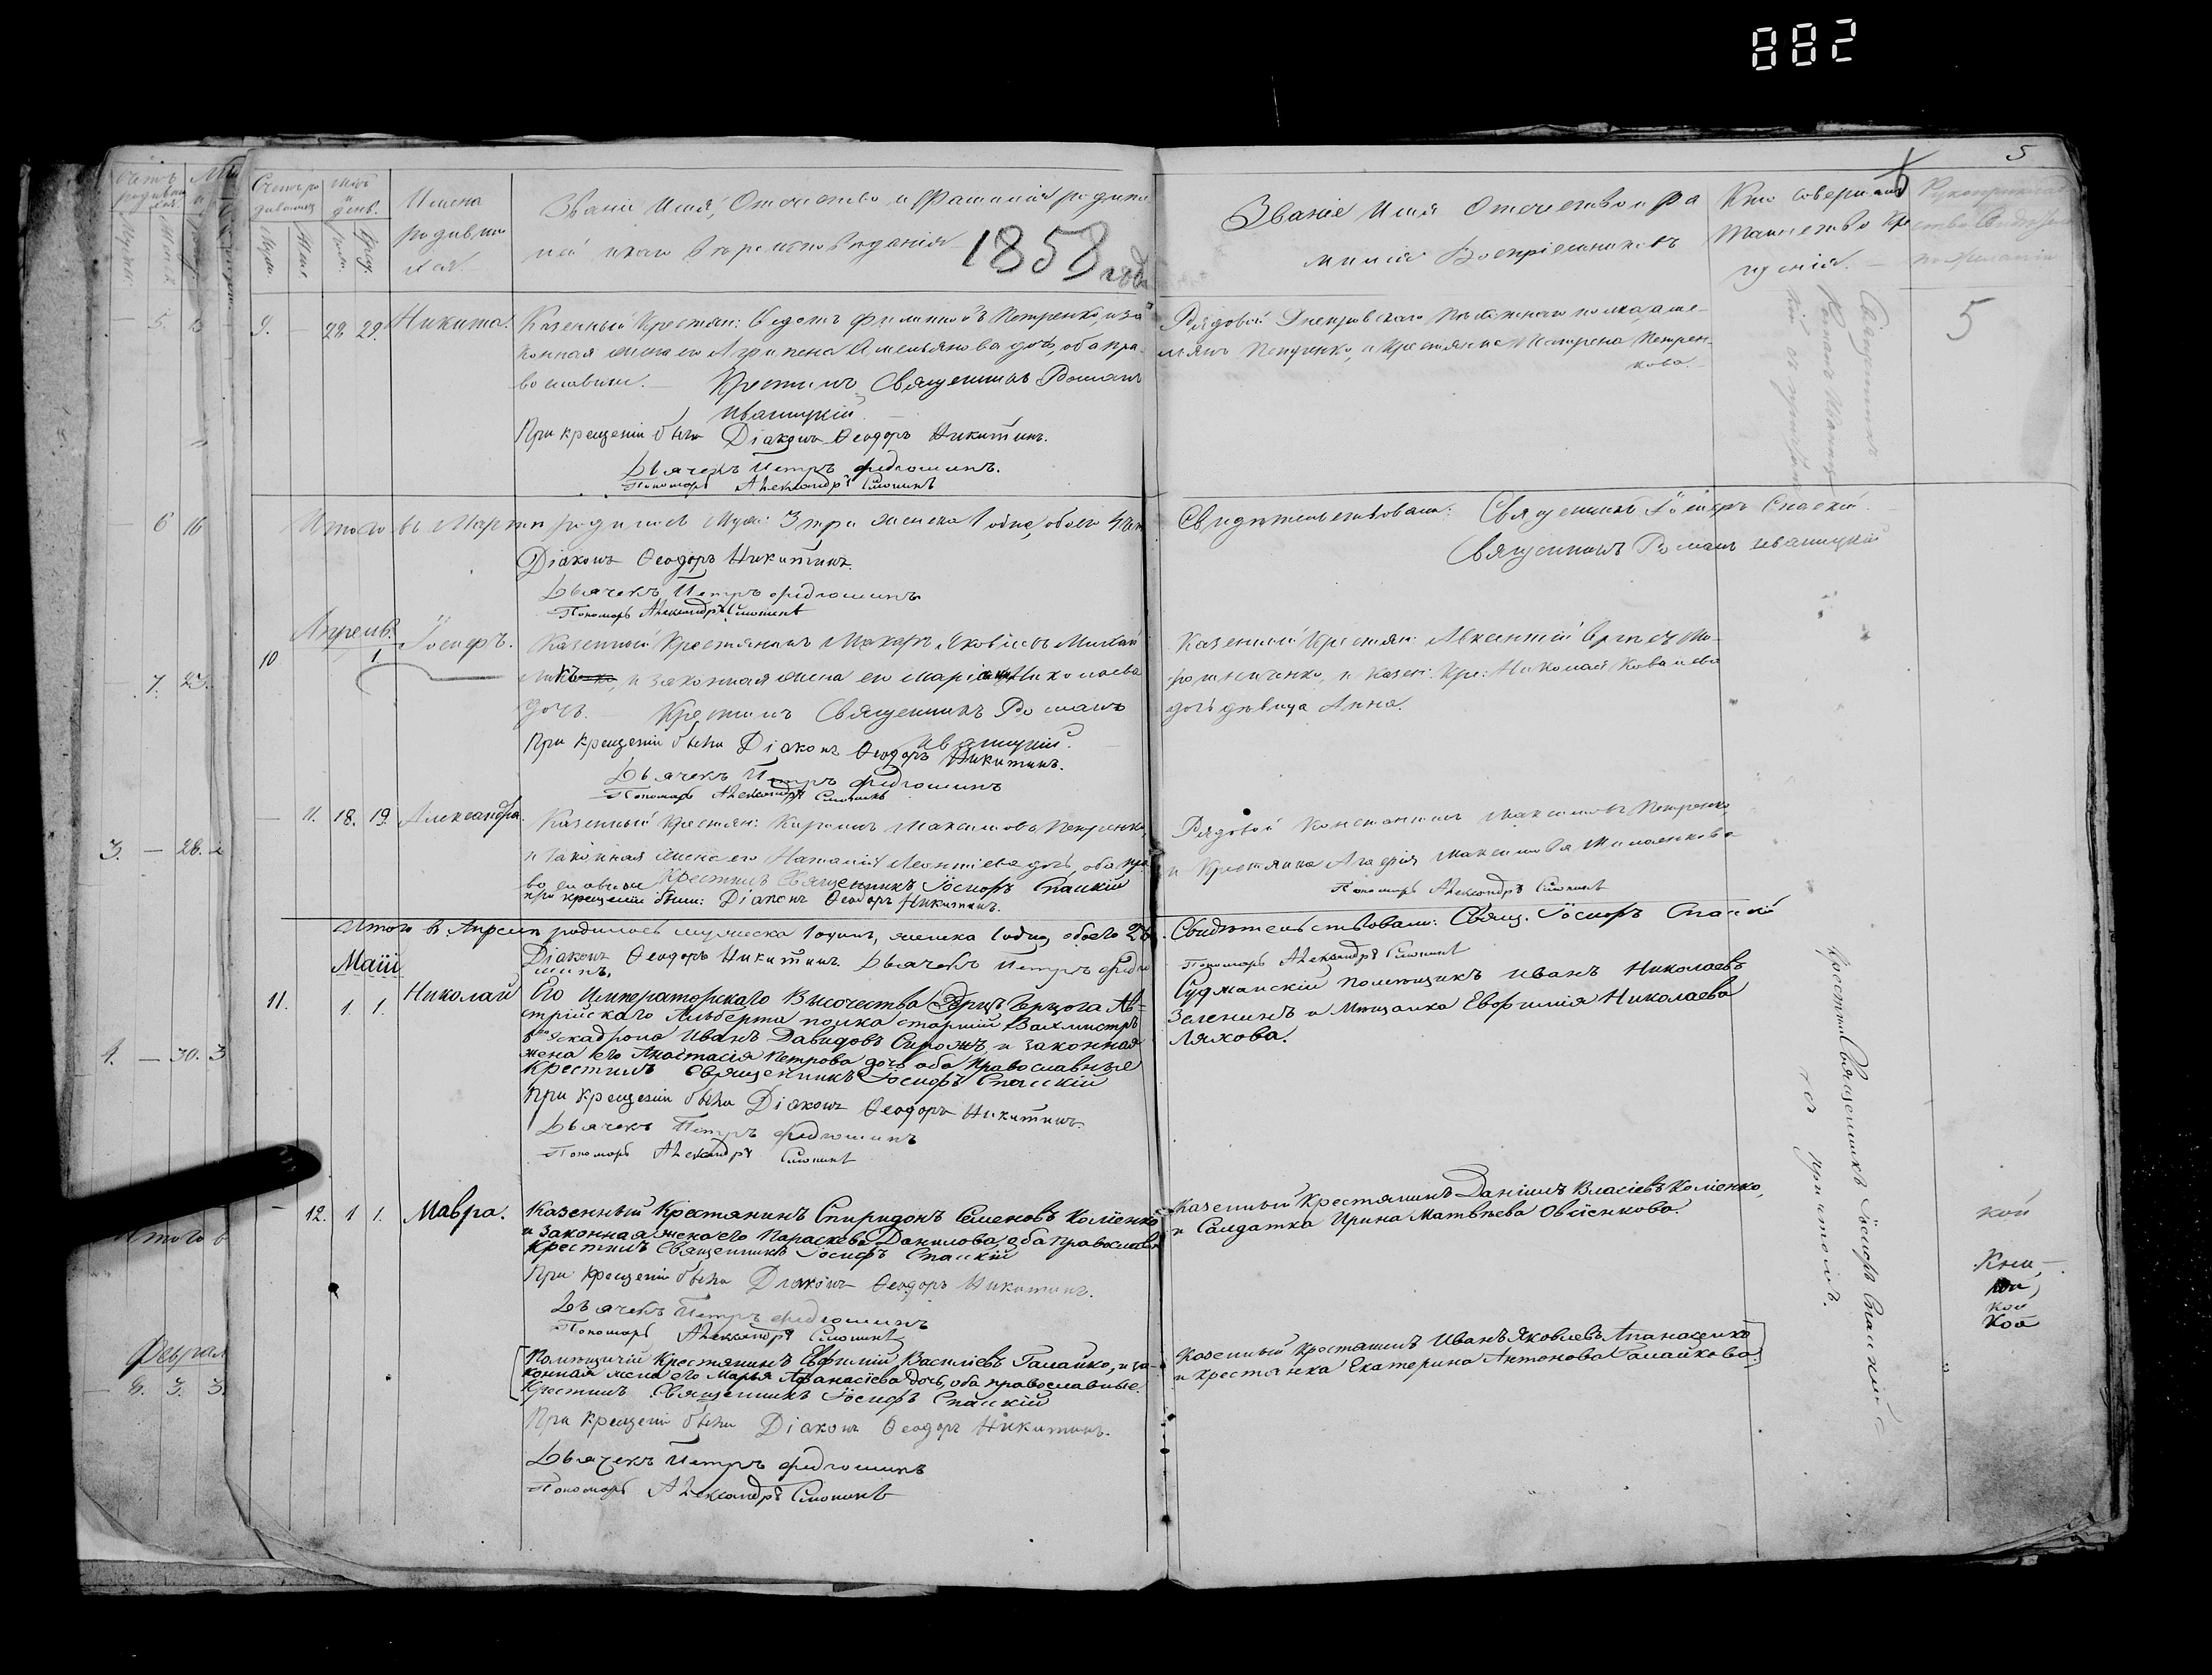 882
5
Счетъ родивш
Муж:
Женск
Счетъ ро
дившихъ
Муж.
Жен.
Мѣс.
и
день.
рожд.
Крещ.
Имена
родивши
хся.
Званіе Имя, Отчество и Фамилія родите
лей и какого Вѣроисповѣданія
1858 года
Званіе Имя Отчество и Фа
милія Воспріемниковъ
Кто совершалъ
таинство Кре
щенія.
Рукоприклад
ство Свидѣтелей
по желанію
5
9. — 28. 29. Никита.
Казенный Крестьян: Филипповъ Петренко, и за
конная жена его Агрипена Емельянова дочь, оба пра
вославные. — Крестилъ Священникъ Романъ
Иваницкій.
При крещеніи были Діаконъ Ѳеодоръ Никитинъ.
Дьячекъ Петръ Федюшинъ.
Пономарь Александръ
Рядовой Днепровскаго Пѣхотнаго полка, Еме-
льянъ и Крестьянка Матрена Петрен-
кова.
Священникъ
Романъ Иваниц
кій съ причтомъ
Итого въ Мартѣ родилось Муж: 3 три женска 1 одна, обоего 4
Діаконъ Ѳеодоръ Никитинъ.
Дьячекъ Петръ Федюшинъ
Пономарь Александръ
Свидѣтельствовали: Священникъ Іосифъ Спаскій
Священникъ Романъ Иваницкій
Апрель.
10 1 Іосифъ.
Казенный Крестьянинъ Макаръ Яковлевъ Михай
и законная жена его Марія Николаева
дочь. — Крестилъ Священникъ Романъ
Иваницкій.
При Крещеніи были Діаконъ Ѳеодоръ Никитинъ.
Дьячекъ Петръ Федюшинъ
Пономарь Александръ
Казенный Крестьян: Авксентій
и Казен: Кре: Николая Ковалева
дочь дѣвица Анна.
— 11. 18. 19. Александра.
Казенный Крестьян: Максимовъ Петренко,
и Законная жена его Наталія Леонтіева дочь, оба пра
вославные Крестилъ Священникъ Іосифъ Спаскій
при крещеніи были: Діаконъ Ѳеодоръ Никитинъ.
Рядовой Константинъ Максимовъ Петренко,
и Крестьянка Агафія Максимова
Пономарь Александръ
Итого в Апрелѣ родилось мужеска 1 одинъ, женска 1 одна, обоего 2
Свидѣтельствовали: Свящ. Іосифъ Спаскій
Діаконъ Ѳеодоръ Никитинъ. Дьячекъ Петръ Федю
шинъ,
Пономарь Александръ
Маій
11. 1. 1. Николай
Его Императорскаго Высочества Эрцъ Герцога Ав-
стрійскаго Альберта полка старшій Вахмистръ
эскадрона Иванъ Давидовъ и законная
жена его Анастасія Петрова дочь оба Православные
Крестилъ Священникъ Іосифъ Спаскій
При Крещеніи были Діаконъ Ѳеодоръ Никитинъ.
Дьячекъ Петръ Федюшинъ
Пономарь Александръ
Суджанскій Помѣщикъ Иванъ Николаевъ
Зеленинъ и Мѣщанка Евфимія Николаева
Ляхова.
— 12. 1 1. Мавра.
Казенный Крестянинъ Спиридонъ Семеновъ Коліенко
и законная жена его Параскева Данилова, оба православ
Крестилъ Священникъ Іосифъ Спаскій
При Крещеніи были Діаконъ Ѳеодоръ Никитинъ.
Дьячекъ Петръ Федюшинъ
Пономарь Александръ
Казенный Крестянинъ Даніилъ Власіевъ Коліенко,
и Салдатка Ирина Матвѣева Овсіенкова.
Помѣщичій Крестянинъ Евфимій Василіевъ Гамайко, и за-
конная жена его Марья Афанасіева дочь, оба православные.
Крестилъ Священникъ Іосифъ Спаскій
При Крещеніи были Діаконъ Ѳеодоръ Никитинъ.
Дьячекъ Петръ Федюшинъ
Пономарь Александръ
Казенный Крестянинъ Иванъ Яковлевъ Апанасенко
и крестянка Екатерина Антонова Гамайкова.
Крестилъ Священникъ Іосифъ Спаскій
съ причтомъ.
кой
кой
кой
5.
6 16
7. 23.
3. — 28.
4. — 30. 3
Итого в
Феврал
— 8. 3. 3.